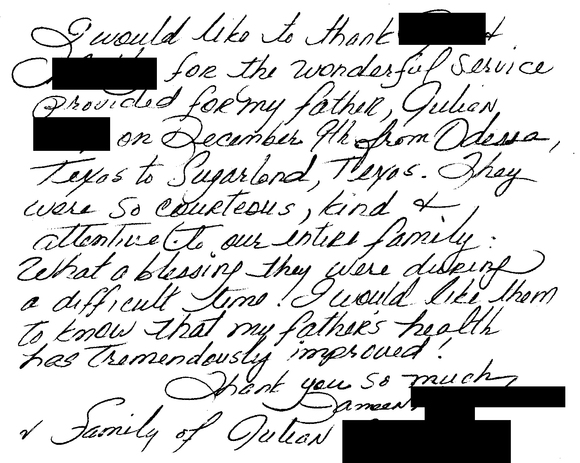 I would like to thank &
for the wonderful service
provided for my father, Julian
on December 9th from Odessa,
Texas to Sugarland, Texas. They
were so courteous, kind &
attentive to our entire family.
What a blessing they were during
a difficult time! I would like them
to know that my father's health
has tremendously improved!
Thank you so much,
& Family of Julian